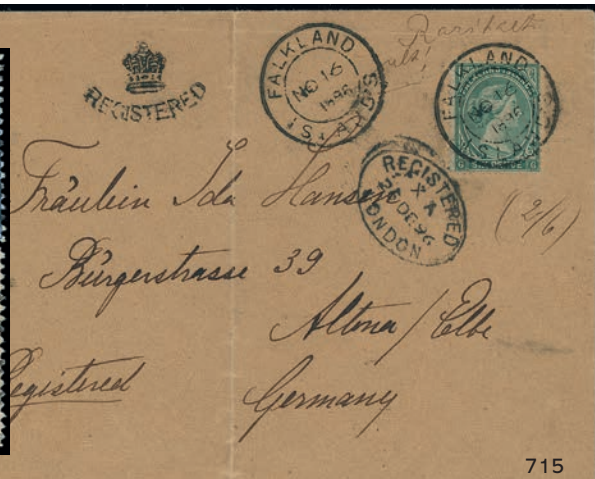 Rarität
REGISTERED
FALKLAND
NO 16
1896
ISLANDS
FALKLAND
NO 16
1896
ISLANDS
REGISTERED
26 DE 96
LONDON
(2/6)
Fräulein Ida Hansen
Bürgerstrasse 39
Altona / Elbe
Registered
Germany
715